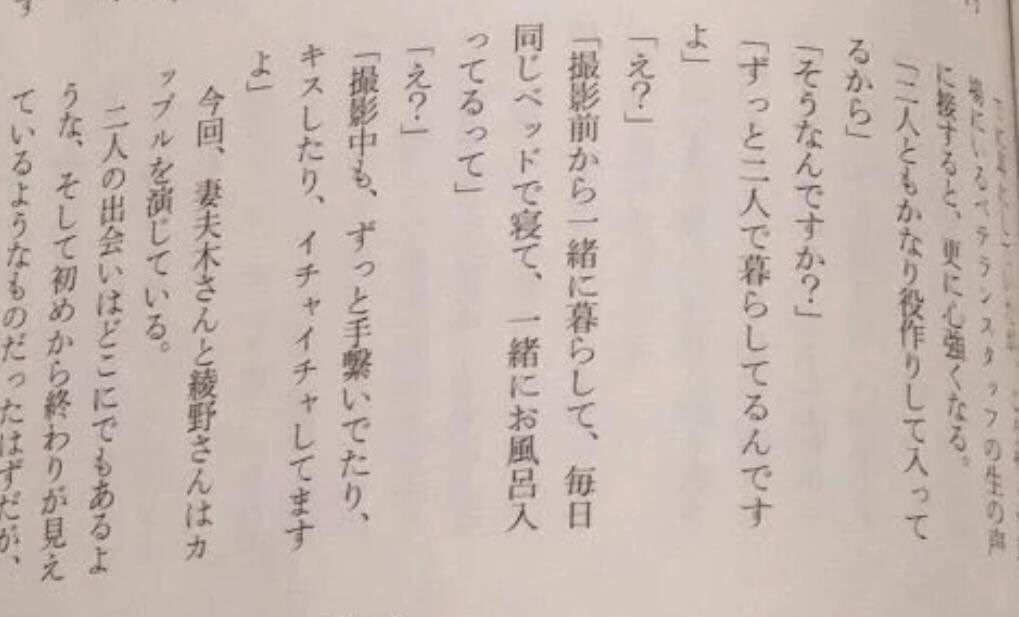 場にいるベテランスタッフの生の声
に接すると、更に心強くなる。
「二人ともかなり役作りして入って
るから」
「そうなんですか？」
「ずっと二人で暮らしてるんです
よ」
「え？」
「撮影前から一緒に暮らして、毎日
同じベッドで寝て、一緒にお風呂入
ってるって」
「え？」
「撮影中も、ずっと手繋いでたり、
キスしたり、イチャイチャしてます
よ」
今回、妻夫木さんと綾野さんはカ
ップルを演じている。
二人の出会いはどこにでもあるよ
うな、そして初めから終わりが見え
ているようなものだったはずだが、
す